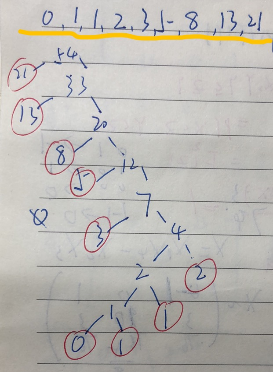 0, 1, 1, 2, 3, 5, 8, 13, 21
54
21 33
13 20
8 12
5 7
3 4
2 2
1 1
0 1